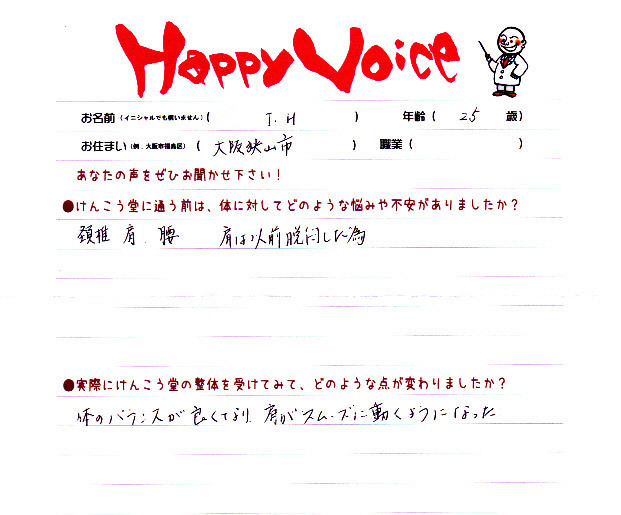 Happy Voice
お名前（イニシャルでも構いません）（ T.H ） 年齢（ 25 歳）
お住まい（例．大阪市福島区）（ 大阪狭山市 ） 職業（ ）
あなたの声をぜひお聞かせ下さい！
●けんこう堂に通う前は、体に対してどのような悩みや不安がありましたか？
頚椎 肩 腰 肩は以前脱臼した為
●実際にけんこう堂の整体を受けてみて、どのような点が変わりましたか？
体のバランスが良くなり 肩がスムーズに動くようになった